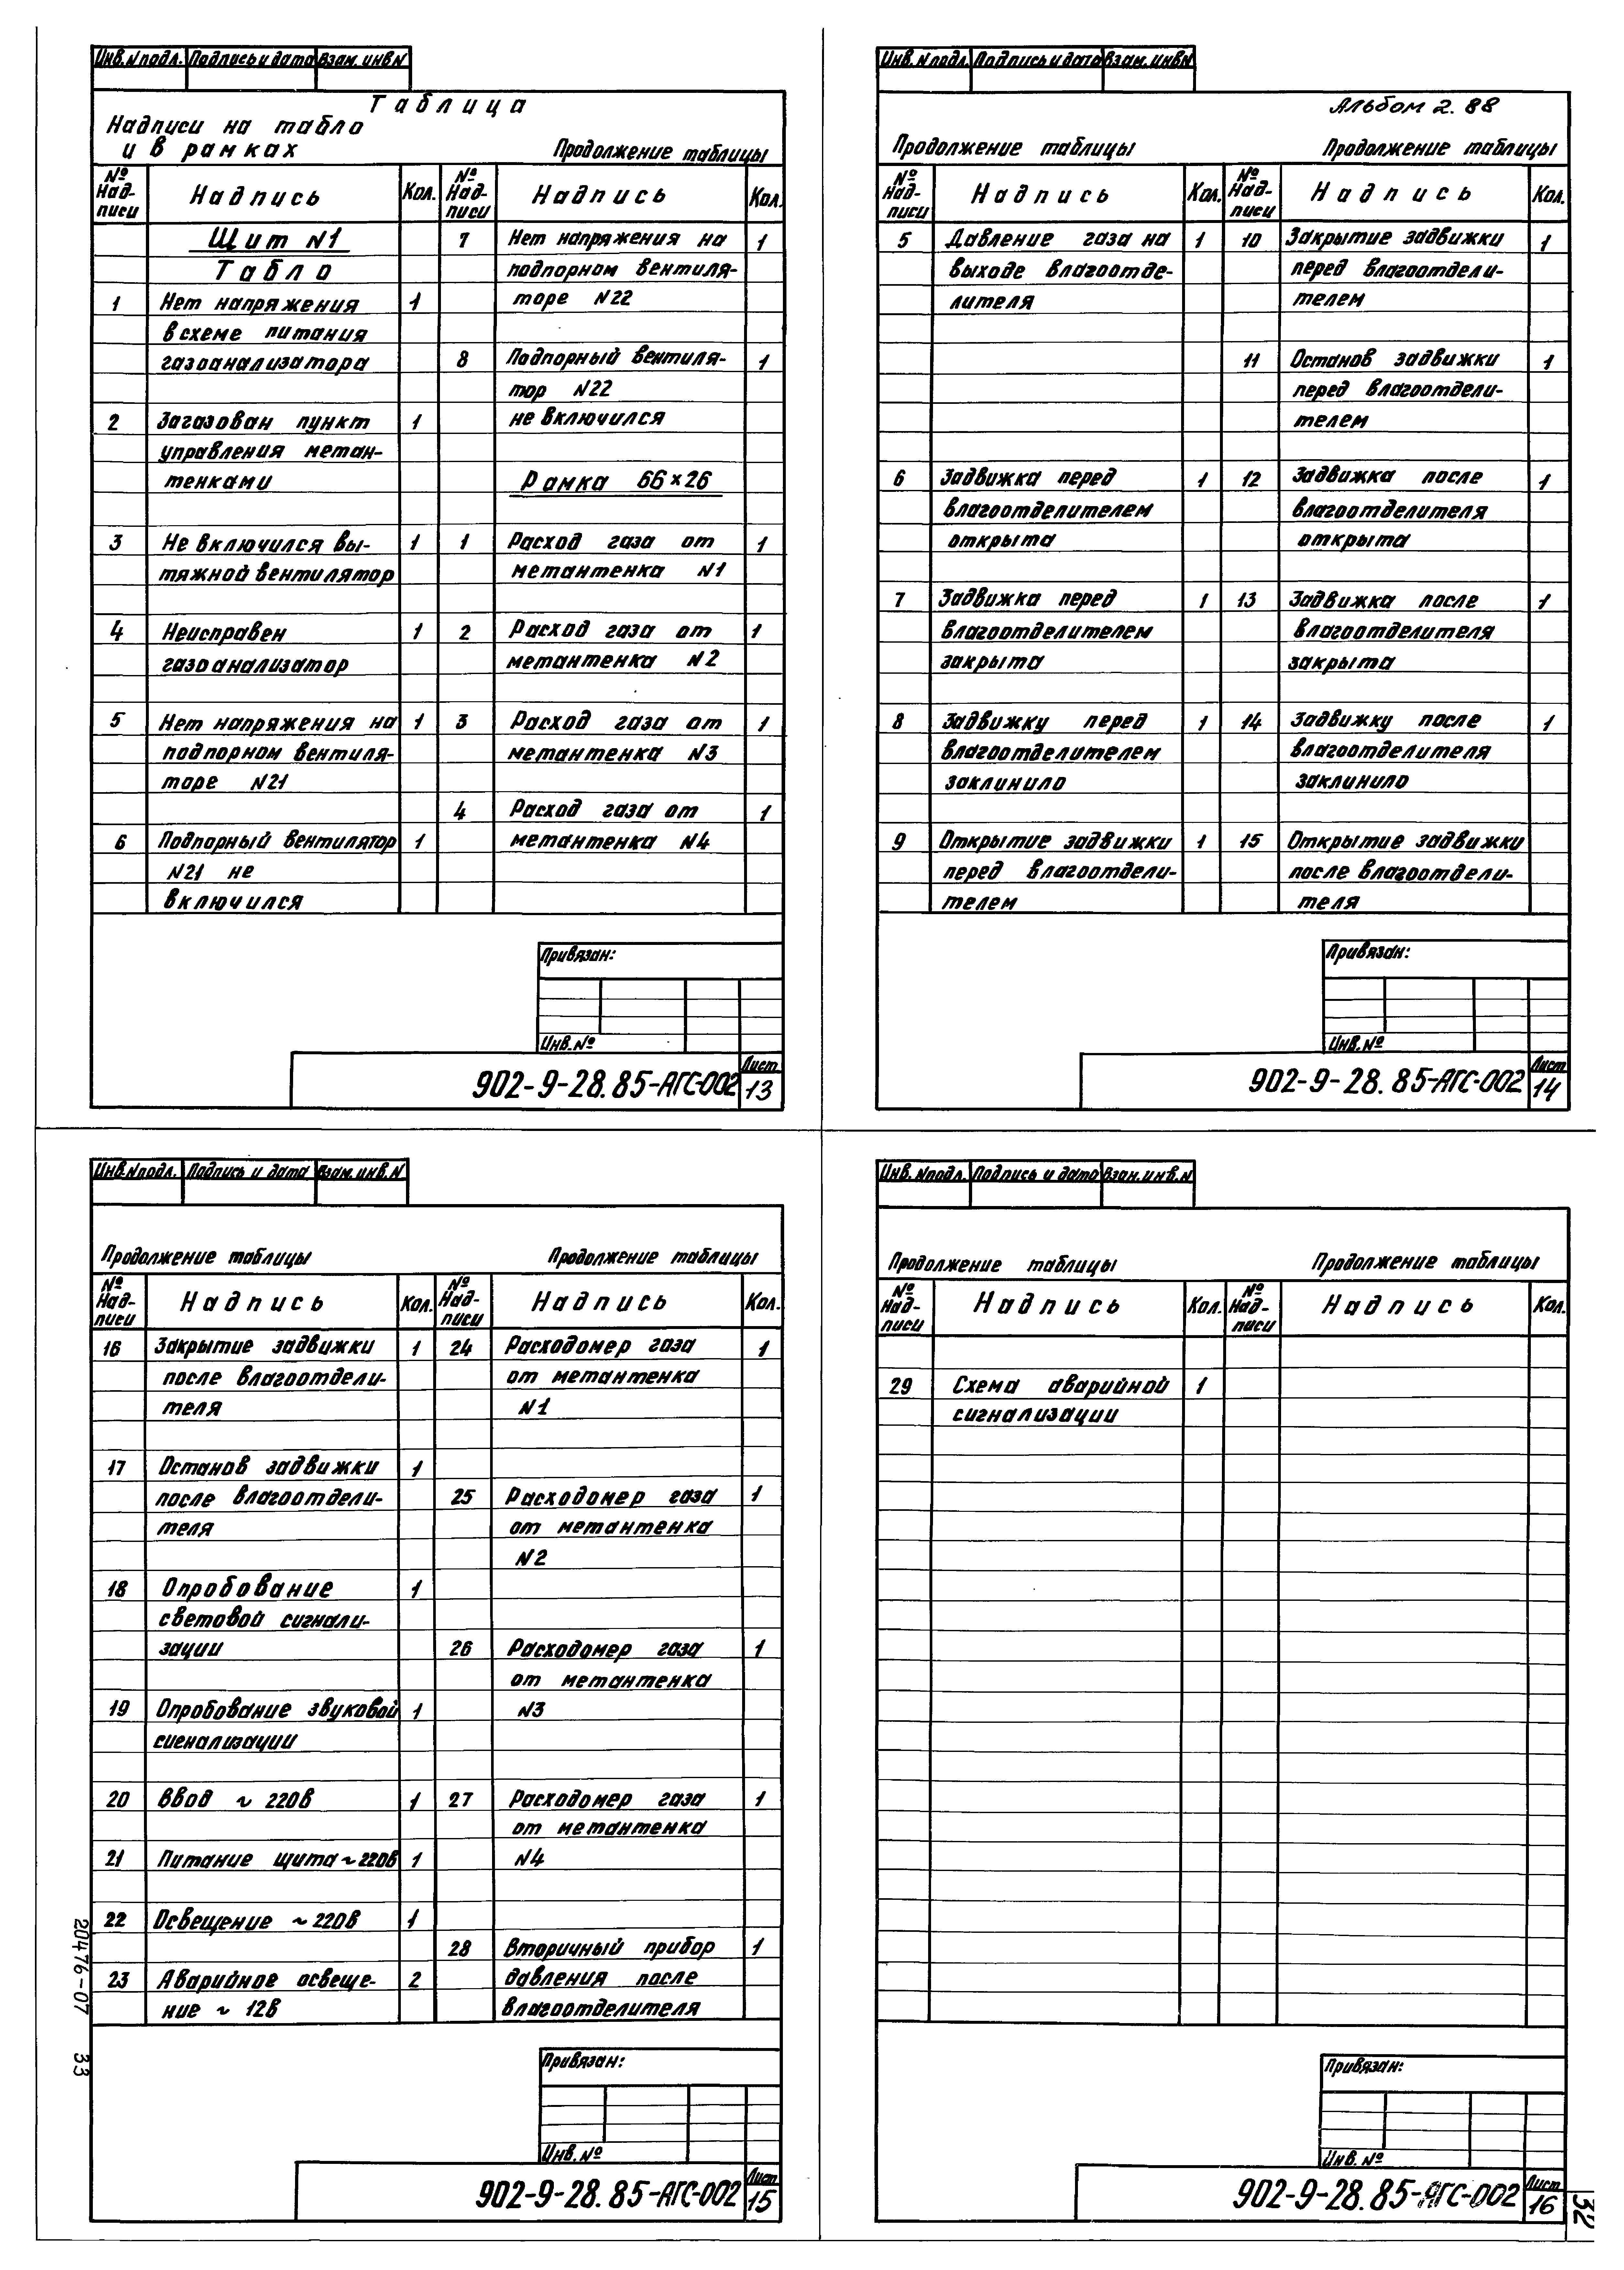 Инв.N подл. Подпись и дата Взам. инв N
Таблица
Надписи на табло
и в рамках
Продолжение таблицы
№ Над-писи Надпись Кол. № Над-писи Надпись Кол.
Щит N1
Табло
1 Нет напряжения 1
в схеме питания
газоанализатора
2 Загазован пункт 1
управления метан-
тенками
3 Не включился вы- 1
тяжной вентилятор
4 Неисправен 1
газоанализатор
5 Нет напряжения на 1
подпорном вентиля-
торе N21
6 Подпорный вентилятор 1
N21 не
включился
7 Нет напряжения на 1
подпорном вентиля-
торе N22
8 Подпорный вентиля- 1
тор N22
не включился
Рамка 66×26
1 Расход газа от 1
метантенка N1
2 Расход газа от 1
метантенка N2
3 Расход газа от 1
метантенка N3
4 Расход газа от 1
метантенка N4
Привязан:
Инв. №
902-9-28.85-АГС-002
Лист
13
Инв. N подл. Подпись и дата Взам. инвN
Альбом 2. 88
Продолжение таблицы Продолжение таблицы
№ Над-писи Надпись Кол. № Над-писи Надпись Кол.
5 Давление газа на 1
выходе влагоотде-
лителя
6 Задвижка перед 1
влагоотделителем
открыта
7 Задвижка перед 1
влагоотделителем
закрыта
8 Задвижку перед 1
влагоотделителем
заклинило
9 Открытие задвижки 1
перед влагоотдели-
телем
10 Закрытие задвижки 1
перед влагоотдели-
телем
11 Останов задвижки 1
перед влагоотдели-
телем
12 Задвижка после 1
влагоотделителя
открыта
13 Задвижка после 1
влагоотделителя
закрыта
14 Задвижку после 1
влагоотделителя
заклинило
15 Открытие задвижки
после влагоотдели-
теля
Привязан:
Инв. №
902-9-28.85-АГС-002
Лист
14
Инв. N подл. Подпись и дата Взам. инв. N
Продолжение таблицы Продолжение таблицы
№ Над-писи Надпись Кол. № Над-писи Надпись Кол.
16 Закрытие задвижки 1
после влагоотдели-
теля
17 Останов задвижки 1
после влагоотдели-
теля
18 Опробование 1
световой сигнали-
зации
19 Опробование звуковой 1
сигнализации
20 Ввод ~ 220в 1
21 Питание щита ~ 220в 1
22 Освещение ~ 220в 1
23 Аварийное освеще- 2
ние ~ 12в
24 Расходомер газа 1
от метантенка
N1
25 Расходомер газа 1
от метантенка
N2
26 Расходомер газа 1
от метантенка
N3
27 Расходомер газа 1
от метантенка
N4
28 Вторичный прибор 1
давления после
влагоотделителя
Привязан:
Инв. №
902-9-28.85-АГС-002
Лист
15
20476-07 33
Инв. N подл. Подпись и дата Взам. инв. N
Продолжение таблицы Продолжение таблицы
№ Над-писи Надпись Кол. № Над-писи Надпись Кол.
29 Схема аварийной 1
сигнализации
Привязан:
Инв. №
902-9-28.85-АГС-002
Лист
16
32